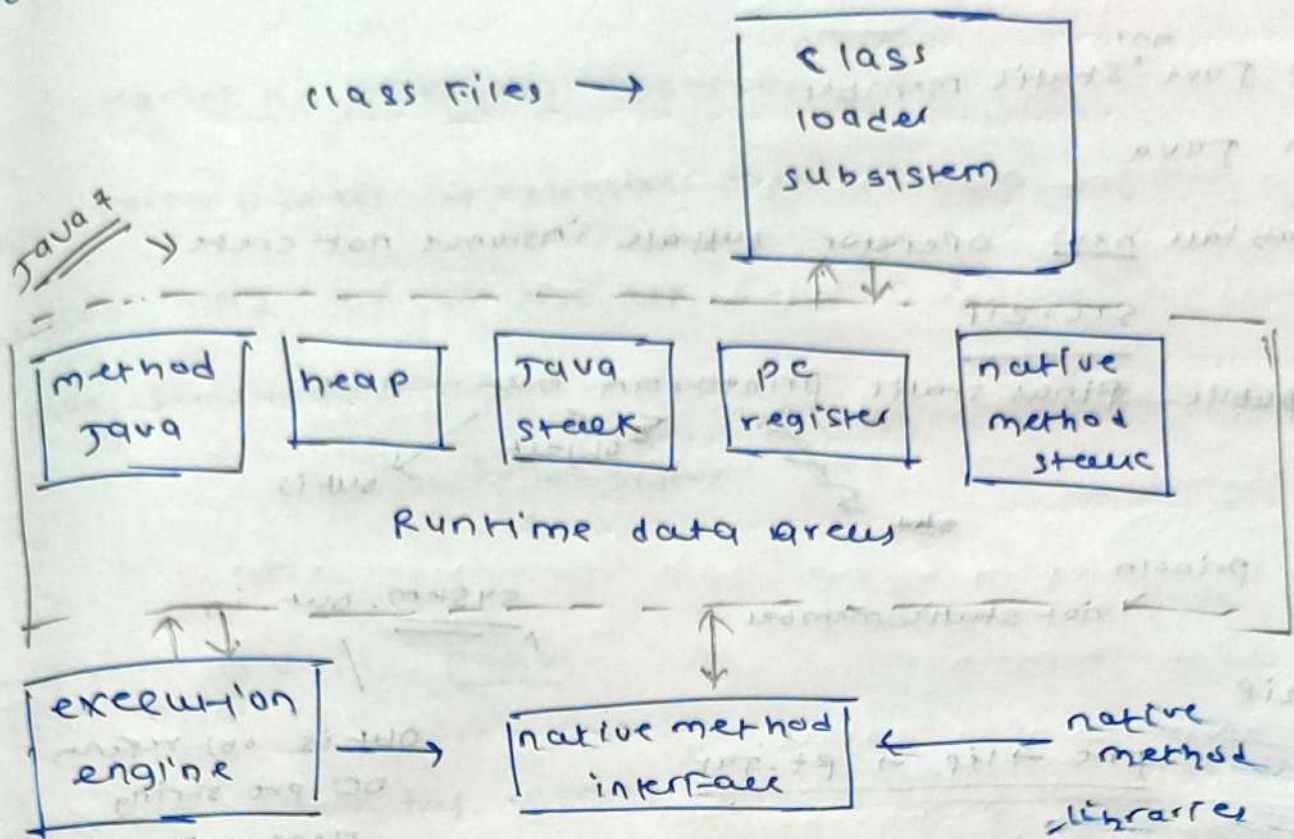 class Files →
class
loader
subsystem
Java 7
method
Java
heap
Java
stack
PC
register
native
method
stack
Runtime data areas
execution
engine
native method
interface
native
method
libraries